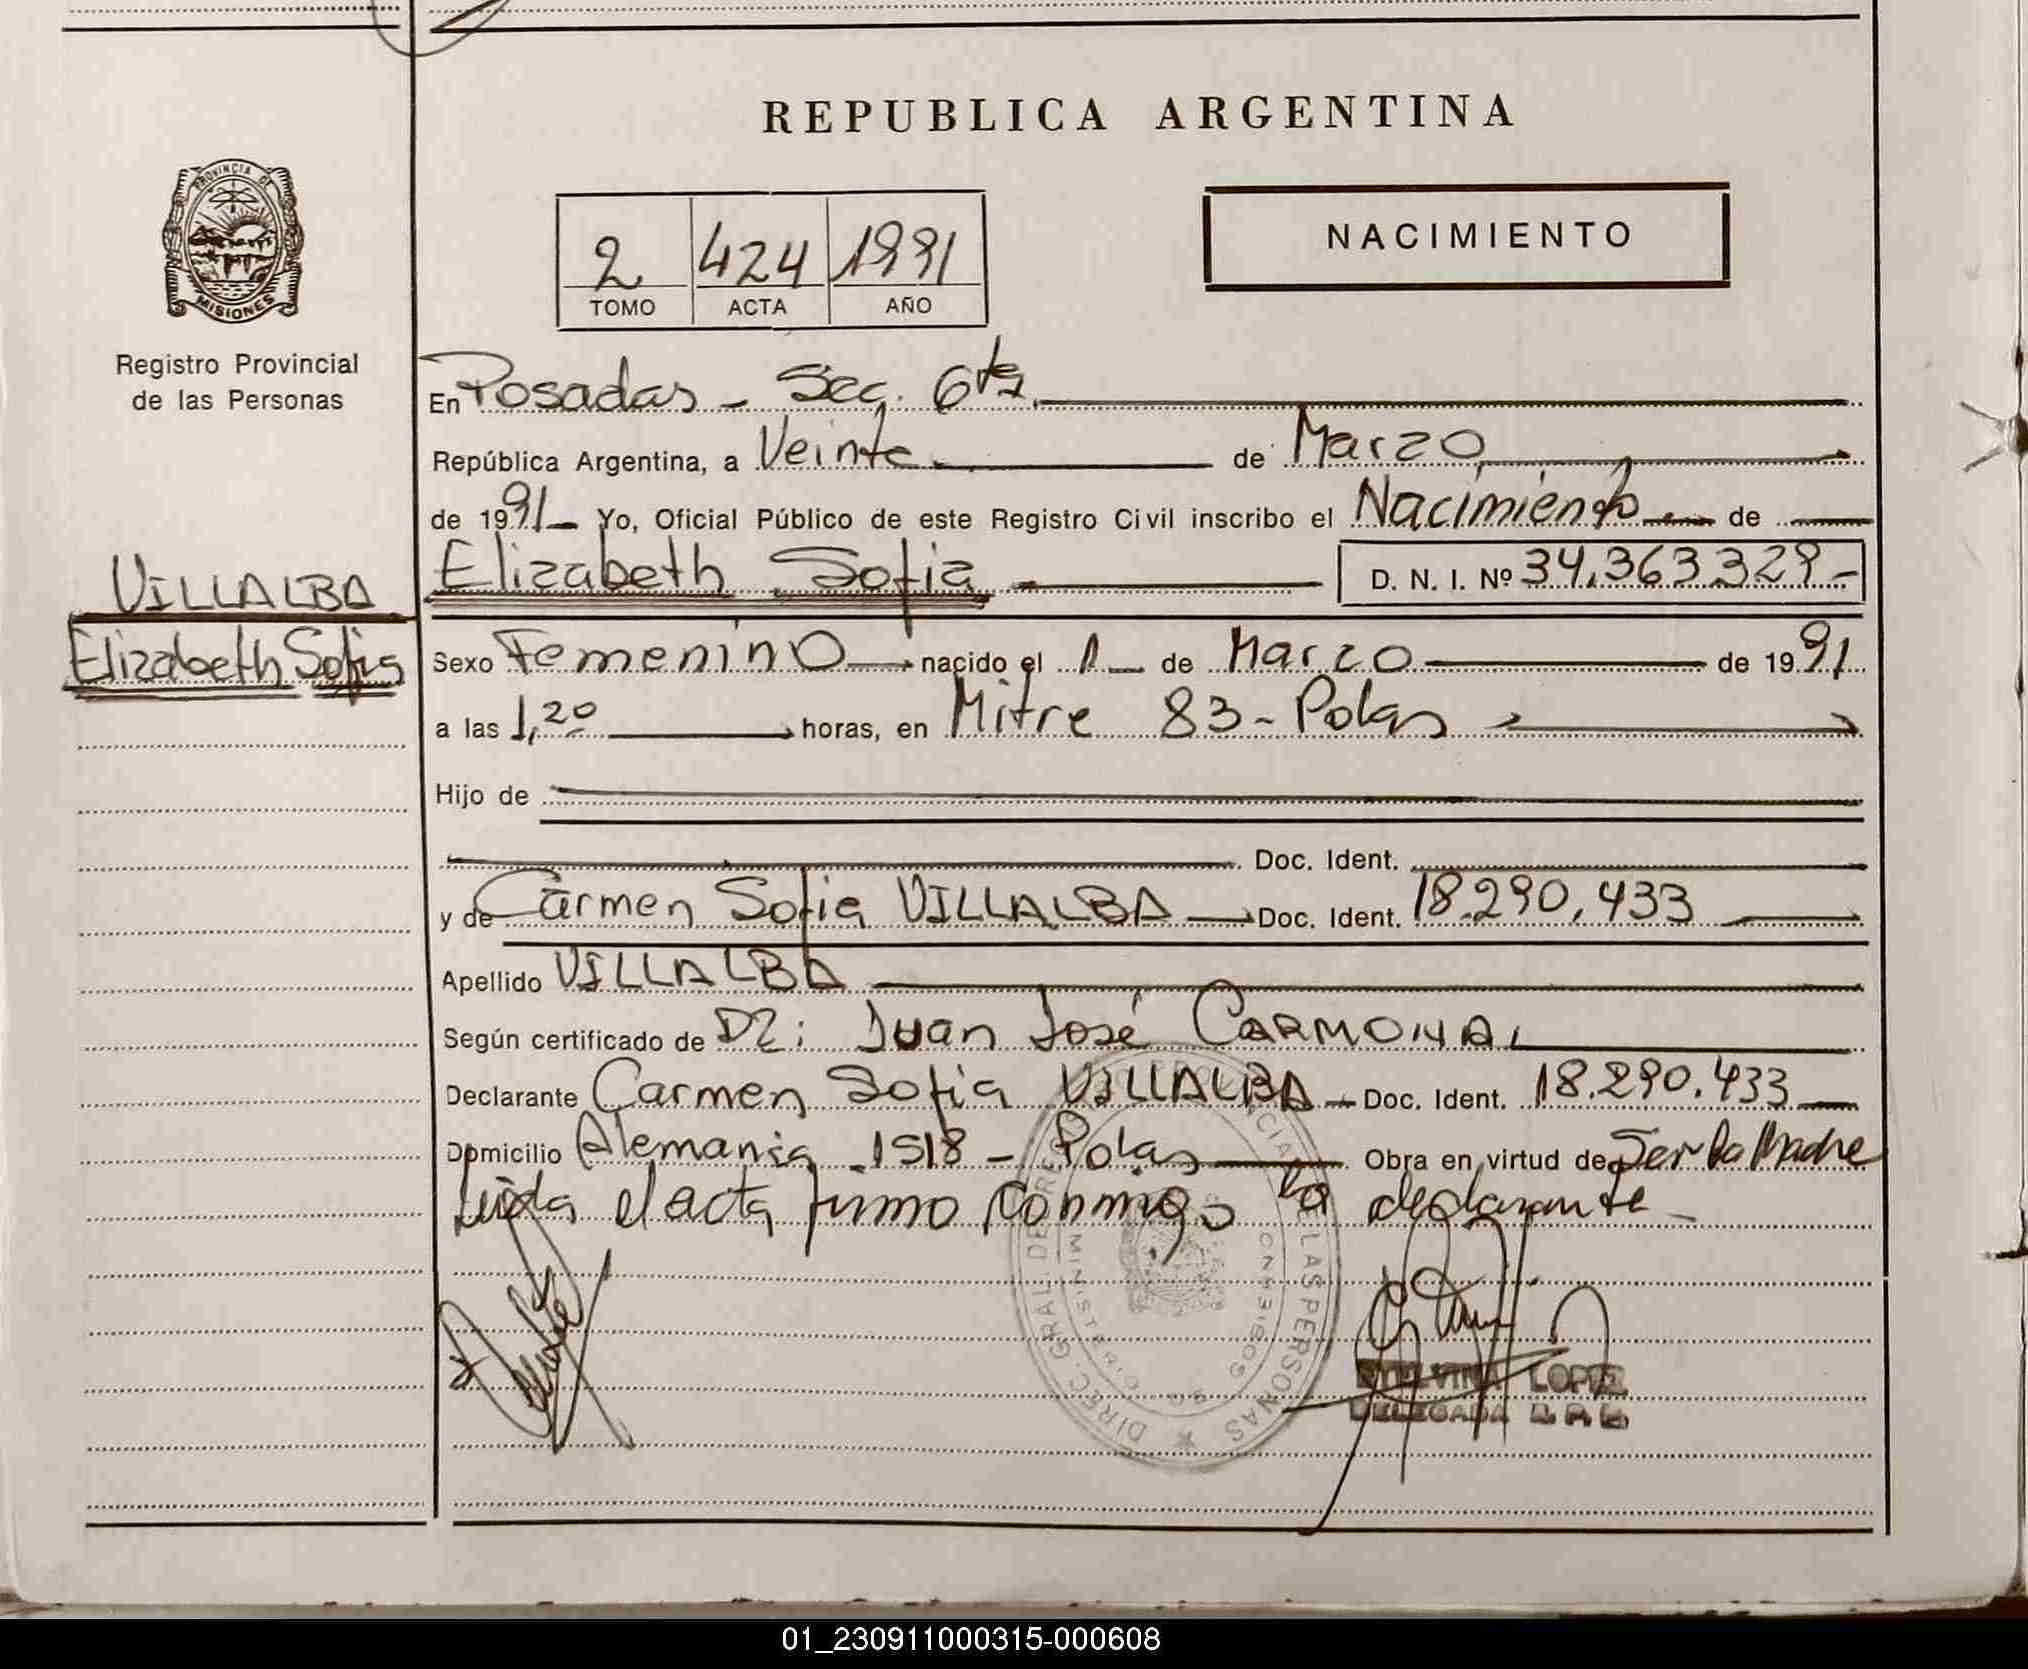 REPUBLICA ARGENTINA
PROVINCIA DE
MISIONES
Registro Provincial
de las Personas
NACIMIENTO
2 424 1991
TOMO ACTA AÑO
En Posadas - Sec. 6ta.
República Argentina, a Veinte de Marzo
de 1991 Yo, Oficial Público de este Registro Civil inscribo el Nacimiento de
Elizabeth Sofia D. N. I. Nº 34.363.329-
VILLALBA
Elizabeth Sofia
Sexo Femenino nacido el 1 de Marzo de 1991
a las 1,20 horas, en Mitre 83 - Pdas
Hijo de
Doc. Ident.
y de Carmen Sofia VILLALBA Doc. Ident. 18.290.433
Apellido VILLALBA
Según certificado de Dr: Juan José CARMONA
Declarante Carmen Sofia VILLALBA Doc. Ident. 18.290.433
Domicilio Alemania 1518 - Pdas Obra en virtud de Ser la Madre
Leida el acta firmo conmigo la declarante
LOPEZ
DELEGADA
01_230911000315-000608